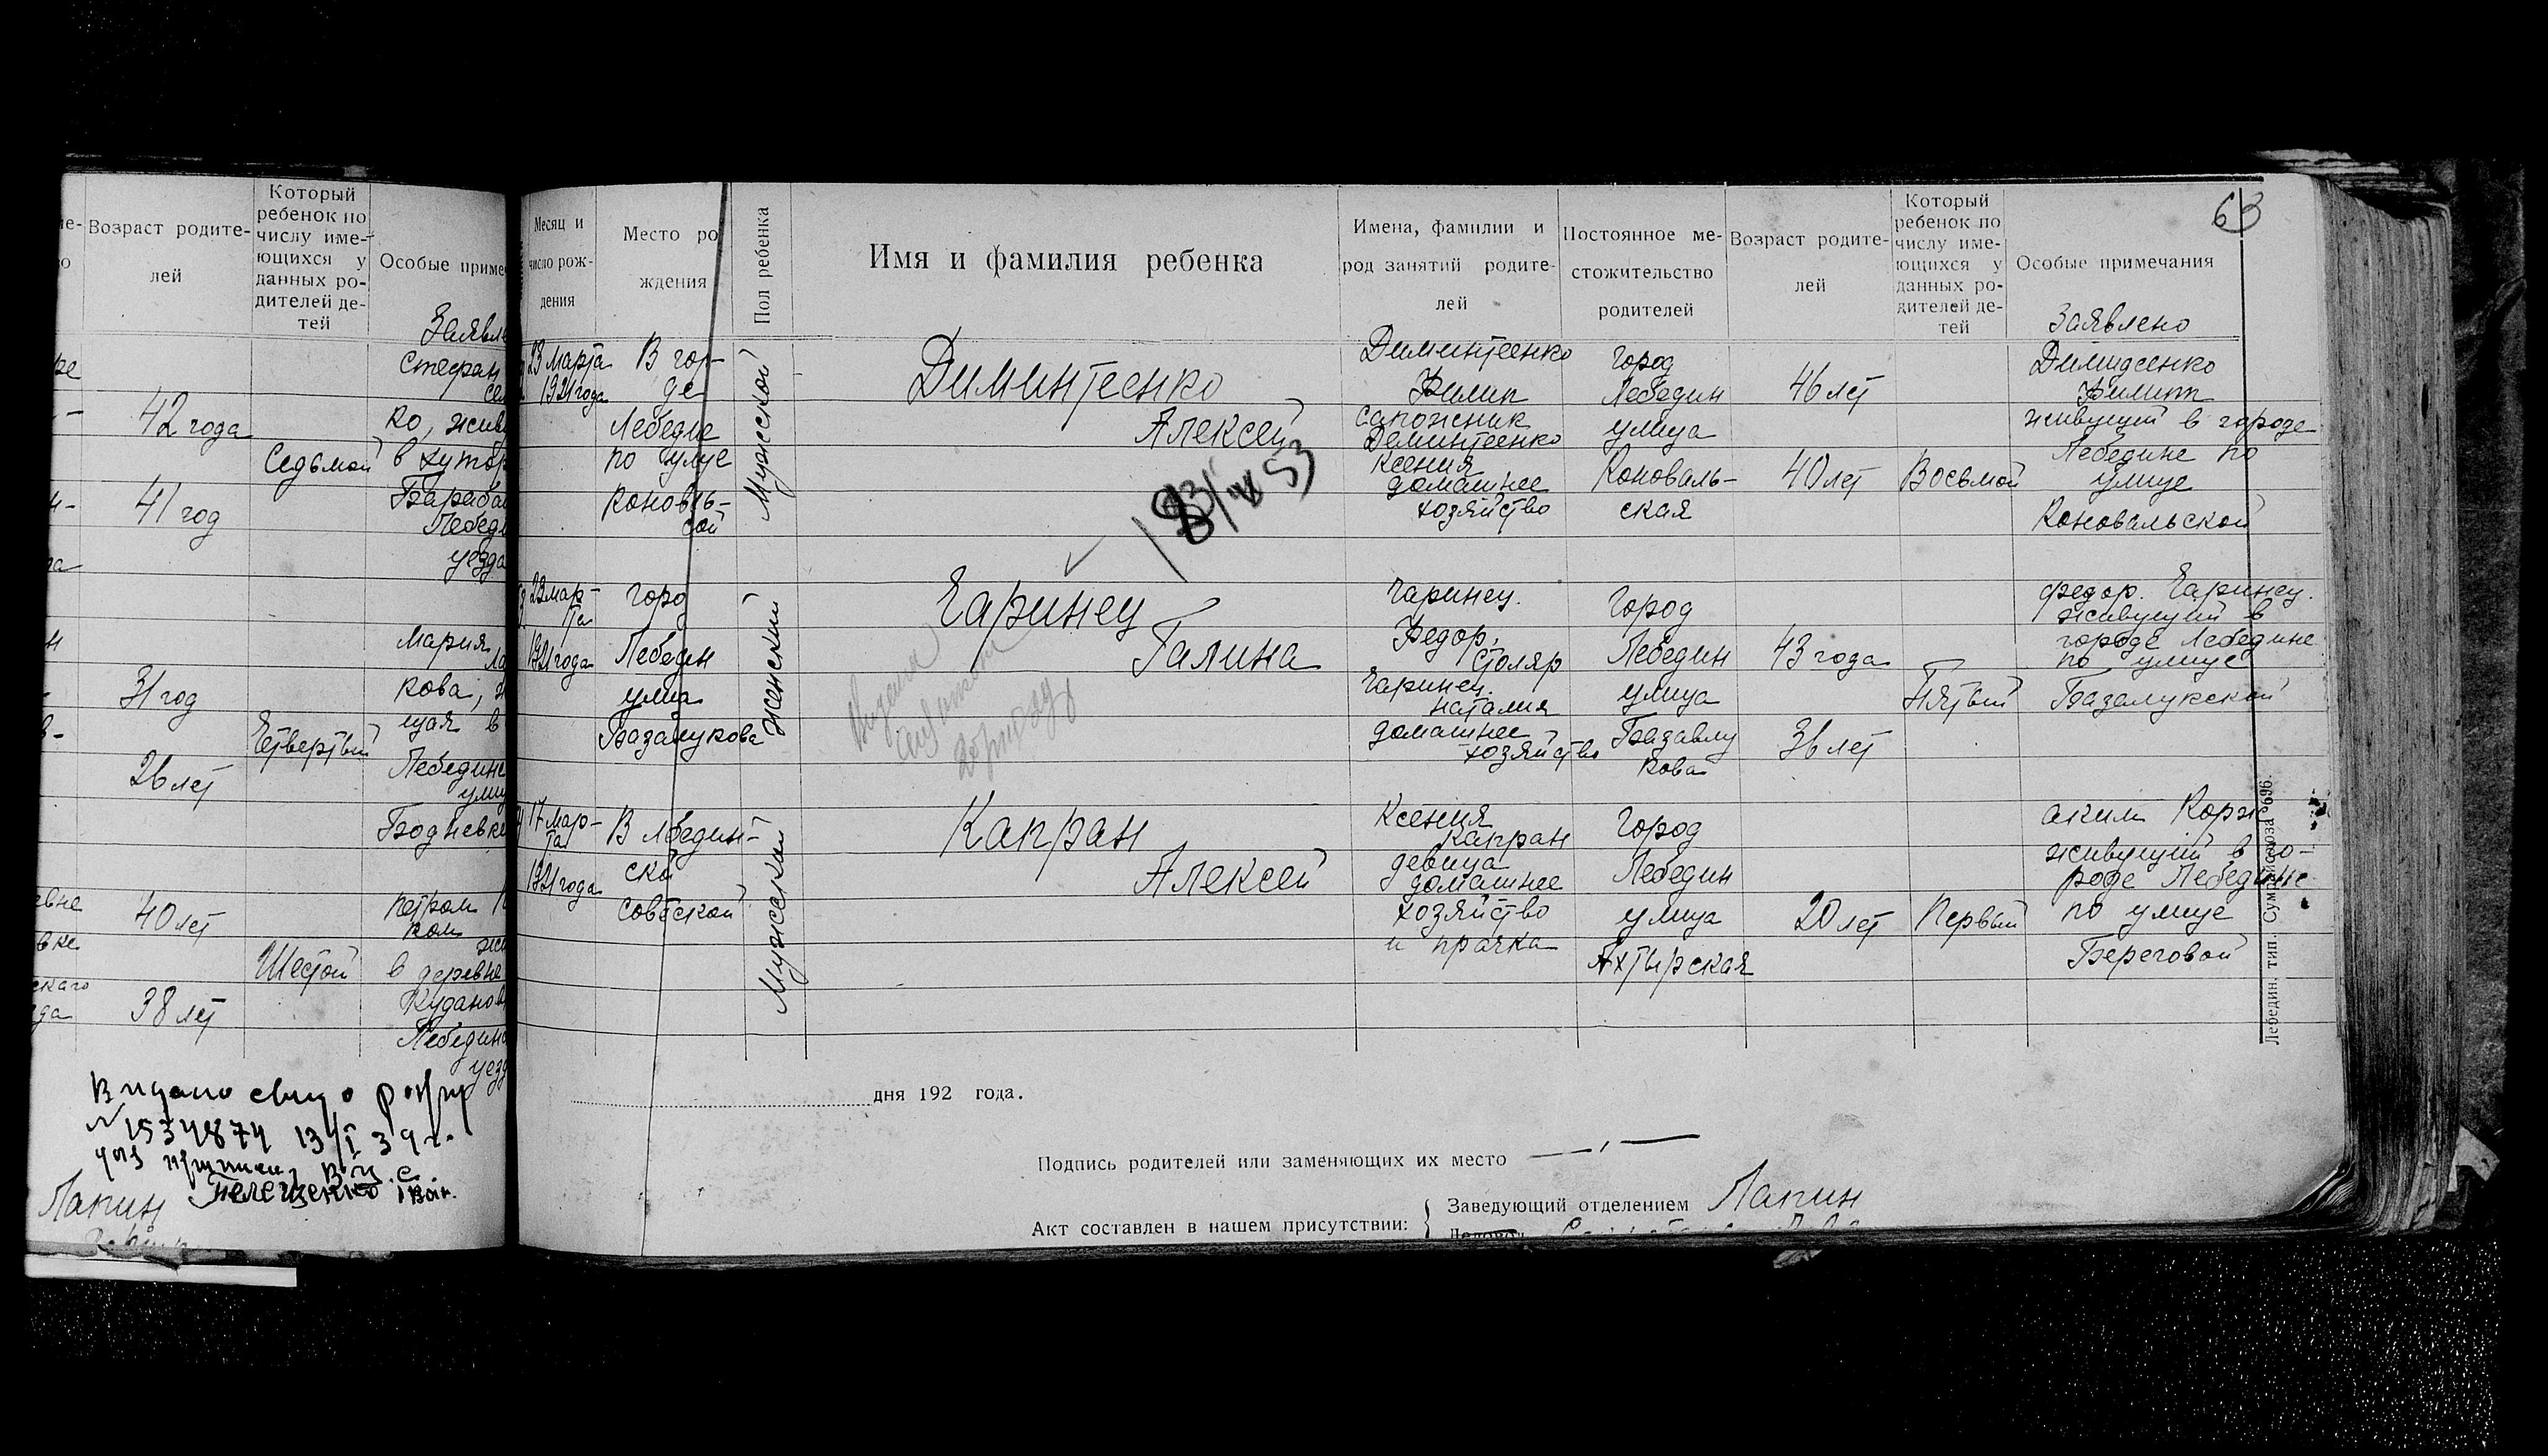 Возраст родите-
лей
Который
ребенок по
числу име-
ющихся у
данных ро-
дителей де-
тей
Особые приме
Заявле
Стефан
42 года
ко, жив
Седьмой
в хутор
41 год
Лебеди
уезда
Мария
31 год
кова,
щая в
Четвертый
Лебедине
26 лет
улиц
40 лет
Петром
Шестой
в деревне
38 лет
Лебедин
уезд
№ 1534874 13/I 39 г.
Лапин
63
Месяц и
число рож-
дения
Место ро
ждения
Пол ребенка
Имя и фамилия ребенка
Имена, фамилии и
род занятий родите-
лей
Постоянное ме-
стожительство
родителей
Возраст родите-
лей
Который
ребенок по
числу име-
ющихся у
данных ро-
дителей де-
тей
Особые примечания
Заявлено
23 марта
1921 года
В гор-
де
Лебедне
по улуце
Коновль-
сой
Мужеской
Диминтеенко
Алексей
Диминтеенко
Филип
сапожник
Деминтеенко
Ксения
домашнее
хозяйство
город
Лебедин
улица
Коноваль-
ская
46 лет
40 лет
Восьмой
Димидсенко
Филипп
живущий в городе
Лебедине по
улице
Коновальской
23 мар-
та
1921 года
горо
Лебедин
улиа
Базалукова
Женский
Чаринец
Галина
Чаринец.
Федор,
столяр
Чаринец.
Наталия
домашнее
хозяйство
Город
Лебедин
улица
Базавлу
кова
43 года
36 лет
Пятый
Федор. Чаринец.
живущий в
городе Лебедине
по улице
Базалукской
17 мар-
та
1921 года
В лбедин-
ской
советской
Мужеской
Капран
Алексей
Ксения
Капран
девица
домашнее
хозяйство
и прачка
город
Лебедин
улица
Ахтырская
20 лет
Первый
аким Корж
живущий в го-
роде Лебедине
по улице
Береговой
Лебедин. тип. Сумрайсоюза 2696.
дня 192 года.
Подпись родителей или заменяющих их место
Акт составлен в нашем присутствии:
Заведующий отделением Лапин